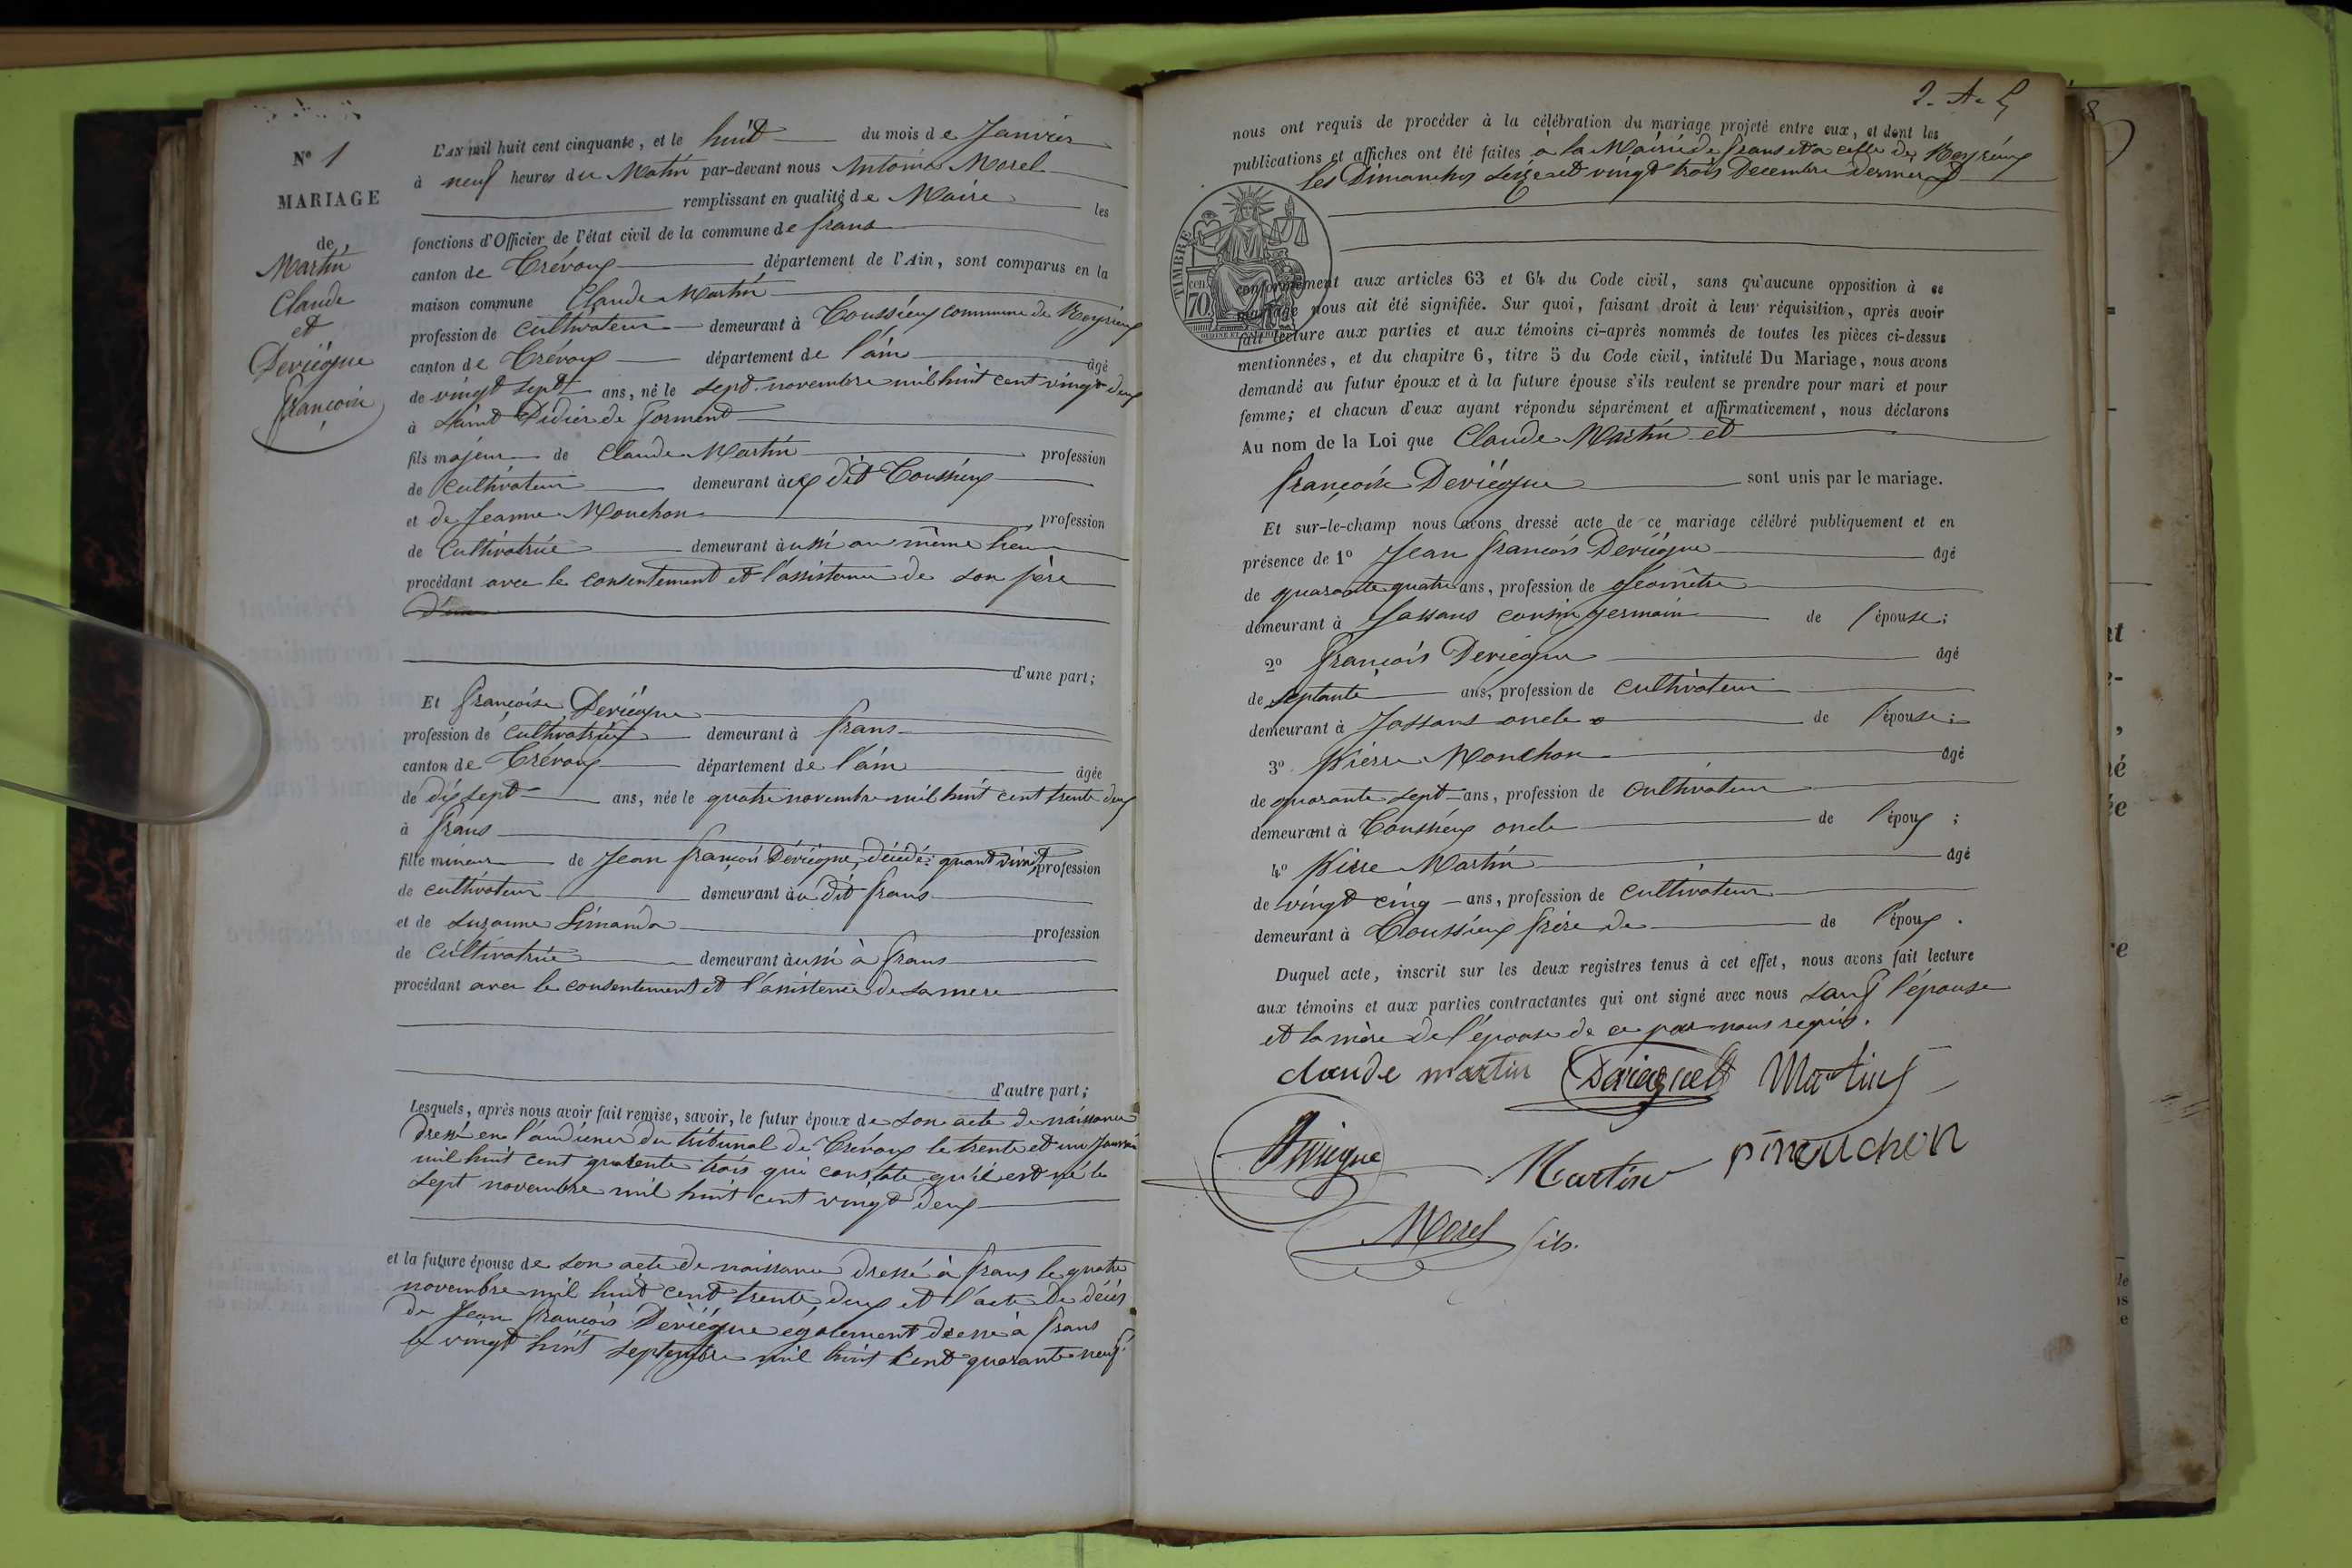 N° 1
MARIAGE
de
Martin
Claude
et
Deriégne
françoise
L'AN mil huit cent cinquante, et le huit du mois de Janvier
à neuf heures du Matin par-devant nous Antoine Morel
remplissant en qualité de Maire les
fonctions d'Officier de l'état civil de la commune de frans
canton de Trévoux département de l'Ain, sont comparus en la
maison commune Claude Martin
profession de cultivateur demeurant à Toussieux commune de Reyrieux
canton de Trévoux département de l'ain âgé
de vingt sept ans, né le sept novembre mil huit cent vingt deux
à saint Didier de forment
fils majeur de Claude Martin profession
de cultivateur demeurant au dit Toussieux
et de Jeanne Mouchon profession
de cultivatrice demeurant aussi au même lieu
procédant avec le consentement et l'assistance de son père
d'une part;
Et françoise Deriégne
profession de cultivatrice demeurant à frans
canton de Trévoux département de l'ain âgée
de dix sept ans, née le quatre novembre mil huit cent trente deux
à frans
fille mineure de Jean françois Deriégne, décédé quand vivait profession
de cultivateur demeurant au dit frans
et de suzanne Limanda profession
de cultivatrice demeurant aussi à frans
procédant avec le consentement et l'assistence de sa mere
d'autre part;
Lesquels, après nous avoir fait remise, savoir, le futur époux de son acte de naissance
dressé en l'audience du tribunal de Trévoux le trente et un Janvier
mil huit cent quarente trois qui constate qu'il est né le
sept novembre mil huit cent vingt deux
et la future épouse de son acte de naissance dressé à frans le quatre
novembre mil huit cent trente deux et l'acte de décès
de Jean françois Deriégne également dressé à frans
le vingt huit septembre mil huit cent quarante neuf.
2.
nous ont requis de procéder à la célébration du mariage projeté entre eux, et dont les
publications et affiches ont été faites à la Mairie de frans et a celle de Reyrieux
les Dimanches seize et vingt trois Decembre dernier
TIMBRE
70
conformément aux articles 63 et 64 du Code civil, sans qu'aucune opposition à ce
mariage nous ait été signifiée. Sur quoi, faisant droit à leur réquisition, après avoir
fait lecture aux parties et aux témoins ci-après nommés de toutes les pièces ci-dessus
mentionnées, et du chapitre 6, titre 5 du Code civil, intitulé Du Mariage, nous avons
demandé au futur époux et à la future épouse s'ils veulent se prendre pour mari et pour
femme; et chacun d'eux ayant répondu séparément et affirmativement, nous déclarons
Au nom de la Loi que Claude Martin et
françoise Deriégne sont unis par le mariage.
Et sur-le-champ nous avons dressé acte de ce mariage célébré publiquement et en
présence de 1° Jean françois Deriégne âgé
de quarante quatre ans, profession de géomètre
demeurant à Jassans cousin germain de l'épouse;
2° françois Deriegne âgé
de septante ans, profession de cultivateur
demeurant à Jassans oncle de l'épouse;
3° Pierre Mouchon âgé
de quarante sept ans, profession de cultivateur
demeurant à Toussieux oncle de l'époux;
4° Pierre Martin âgé
de vingt cinq ans, profession de cultivateur
demeurant à Toussieux frère de de l'époux.
Duquel acte, inscrit sur les deux registres tenus à cet effet, nous avons fait lecture
aux témoins et aux parties contractantes qui ont signé avec nous sauf l'épouse
et la mère de l'épouse de ce par nous requis.
claude martin Deriegne Martin
Deriegne Martin pmouchon
Morel fils.